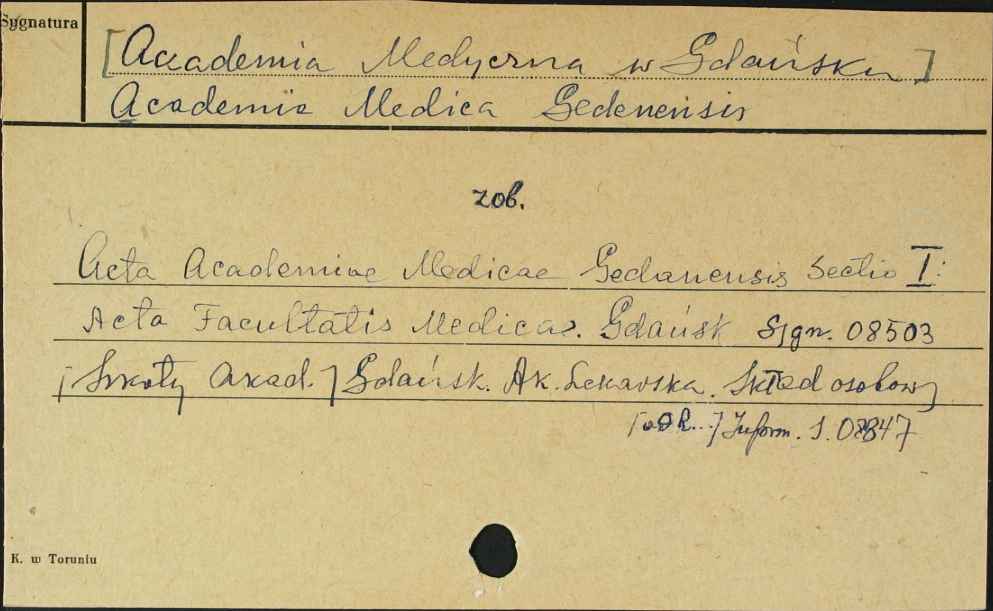 Sygnatura
[Akademia Medyczna w Gdańsku]
Academia Medica Gedenensis
zob.
Acta Academiae Medicae Gedanensis Sectio I:
Acta Facultatis Medicae. Gdańsk Sygn. 08503
[Szkoły Akad.] Gdańsk. Ak. Lekarska. Skład osobowy
Inform. S. 08847
K. w Toruniu